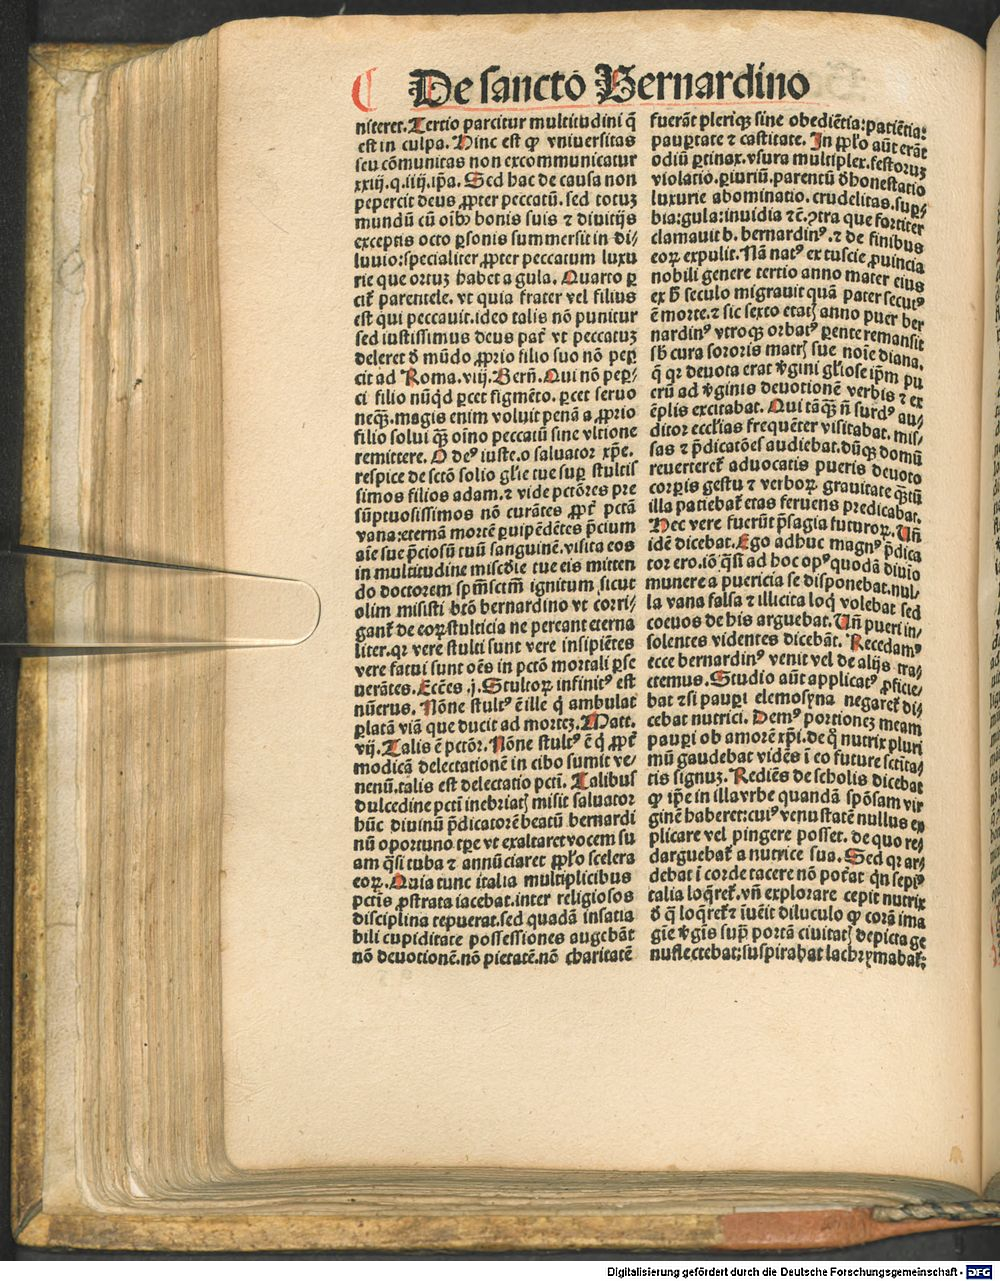 De sancto Bernardino
niteret. Tertio parcitur multitudini q̄
est in culpa. Hinc est ꝙ vniuersitas
seu cōmunitas non excommunicatur
xxiij.q.iiij.ip̄a. Sed hac de causa non
pepercit deus ꝓpter peccatū. sed totuꝫ
mundū cū oibꝰ bonis suis ⁊ diuitijs
exceptis octo ꝑsonis summersit in di⸗
luuio: specialiter ꝓpter peccatum luxu
rie que ortuꝫ habet a gula. Quarto ꝑ
citᷣ parentele. vt quia frater vel filius
est qui peccauit. ideo talis nō punitur
sed iustissimus deus patᷣ vt peccatuꝫ
deleret ď mūdo ꝓprio filio suo nō peꝑ
cit ad Roma. viij. Bern̄. Qui nō peꝑ⸗
ci filio nūqͥd ꝑcet figmēto. ꝑcet seruo
neqͣꝫ. magis enim voluit penā a ꝓprio
filio solui qͣꝫ oīno peccatū sine vltione
remittere. O deꝰ iuste. o saluator xp̄e.
respice de sctō solio glīe tue suꝑ stultis
simos filios adam. ⁊ vide pctōres pre
sūptuosissimos nō curātes ꝓptᷣ pctā
vana: eternā mortē ꝑuipēdētes p̄cium
aīe sue p̄ciosū tuū sanguinē. visita eos
in multitudine miscd̄ie tue eis mitten
do doctorem spm̄sctm̄ ignitum sicut
olim misisti btō bernardino vt corri⸗
gantᷣ de eoꝝ stulticia ne pereant eterna
liter. qꝛ vere stulti sunt vere insipiētes
vere fatui sunt oēs in pctō mortali ꝑse
uerātes. Ecc̄es .j. Stultoꝝ infinitꝰ est
nūerus. Nōne stultꝰ ē ille qͥ ambulat
ꝑ latā viā que ducit ad morteꝫ. Matt.
vij. Talis ē pctōr. Nōne stultꝰ ē qͥ ꝓptᷣ
modicā delectationē in cibo sumit ve⸗
nenū. talis est delectatio pctī. Talibus
dulcedine pctī inebriatꝭ misit saluator
hūc diuinū p̄dicatorē beatū bernardi
nū oportuno tꝑe vt exaltaret vocem su
am qͣsi tuba ⁊ annūciaret ꝓplo scelera
eoꝝ. Quia tunc italia multiplicibus
pctīs ꝓstrata iacebat. inter religiosos
disciplina tepuerat. sed quadā insatia
bili cupiditate possessiones augebāt
nō deuotionē. nō pietatē. nō charitatē
fuerāt pleriqꝫ sine obediētia: patiētia:
pauꝑtate ⁊ castitate. In ꝓplo aūt erāt
odiū ꝑtinax. vsura multiplex. festoruꝫ
violatio. ꝑiuriū. parentū ďhonestatio
luxurie abominatio. crudelitas. suꝑ⸗
bia: gula: inuidia ⁊c̄. ꝯtra que fortiter
clamauit b. bernardinꝰ. ⁊ de finibus
eoꝝ expulit. Nā natꝰ ex tuscie ꝓuincia
nobili genere tertio anno mater eius
ex h̄ seculo migrauit quā pater secutꝰ
ē morte. ⁊ sic sexto etatꝭ anno puer ber
nardinꝰ vtroqꝫ orbatꝰ ꝑente remansit
sb̄ cura sororis matrꝭ sue noīe diana.
q̄ qꝛ deuota erat v̄gini gl̄iose ip̄m pu
erū ad v̄ginis deuotionē verbis ⁊ ex
ēplis excitabat. Qui tāqͣꝫ n̄ surdꝰ au⸗
ditor eccl̄ias frequēter visitabat. mis⸗
sas ⁊ p̄dicatōes audiebat. dūqꝫ domū
reuerteretᷣ aduocatis pueris deuoto
corꝑis gestu ⁊ verboꝝ grauitate qͣꝫtū
illa patiebatᷣ etas feruens predicabat.
Hec vere fuerūt p̄sagia futuroꝝ. Vn̄
idē dicebat. Ego adhuc magnꝰ p̄dica
tor ero. iō qͣsi ad hoc opꝰ quodā diuio
munere a puericia se disponebat. nul⸗
la vana falsa ⁊ illicita loqͥ volebat sed
coeuos de his arguebat. Vn̄ pueri in⸗
solentes videntes dicebāt. Recedamꝰ
ecce bernardinꝰ venit vel de alijs tra⸗
ctemus. Studio aūt applicatꝰ ꝓficie⸗
bat ⁊ si pauꝑi elemosyna negaretᷣ di⸗
cebat nutrici. Demꝰ portioneꝫ meam
pauꝑi ob amorē xp̄i. de qͦ nutrix pluri
mū gaudebat vidēs ī eo future sctīta⸗
tis signuꝫ. Rediēs de scholis dicebat
ꝙ ip̄e in illa vrbe quandā spōsam vir
ginē haberet: cuiꝰ venustatē nullus ex
plicare vel pingere posset. de quo re⸗
darguebatᷣ a nutrice sua. Sed qꝛ ar⸗
debat ī corde tacere nō potᷣat qͥn sepiꝰ
talia loq̄retᷣ. vn̄ explorare cepit nutrix
ď q̄ loq̄retᷣ ⁊ īuēit diluculo ꝙ corā ima
gīe v̄gis supͣ portā ciuitatꝭ depicta ge
nuflectebat: suspirabat lachrymabatᷣ:
Digitalisierung gefördert durch die Deutsche Forschungsgemeinschaft - DFG